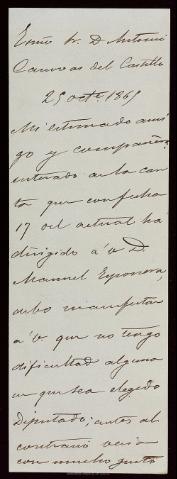 Exmo Sr. D Antonio
Canovas del Castillo
25 octe. 1869
Mi estimado ami
go y compañero,
enterado de la car
ta que con fecha
17 del actual ha
dirigido á D.
Manuel
debo manifestar
á V que no tengo
dificultad alguna
en que sea elegido
Diputado; antes al
contrario veria
con mucho gusto